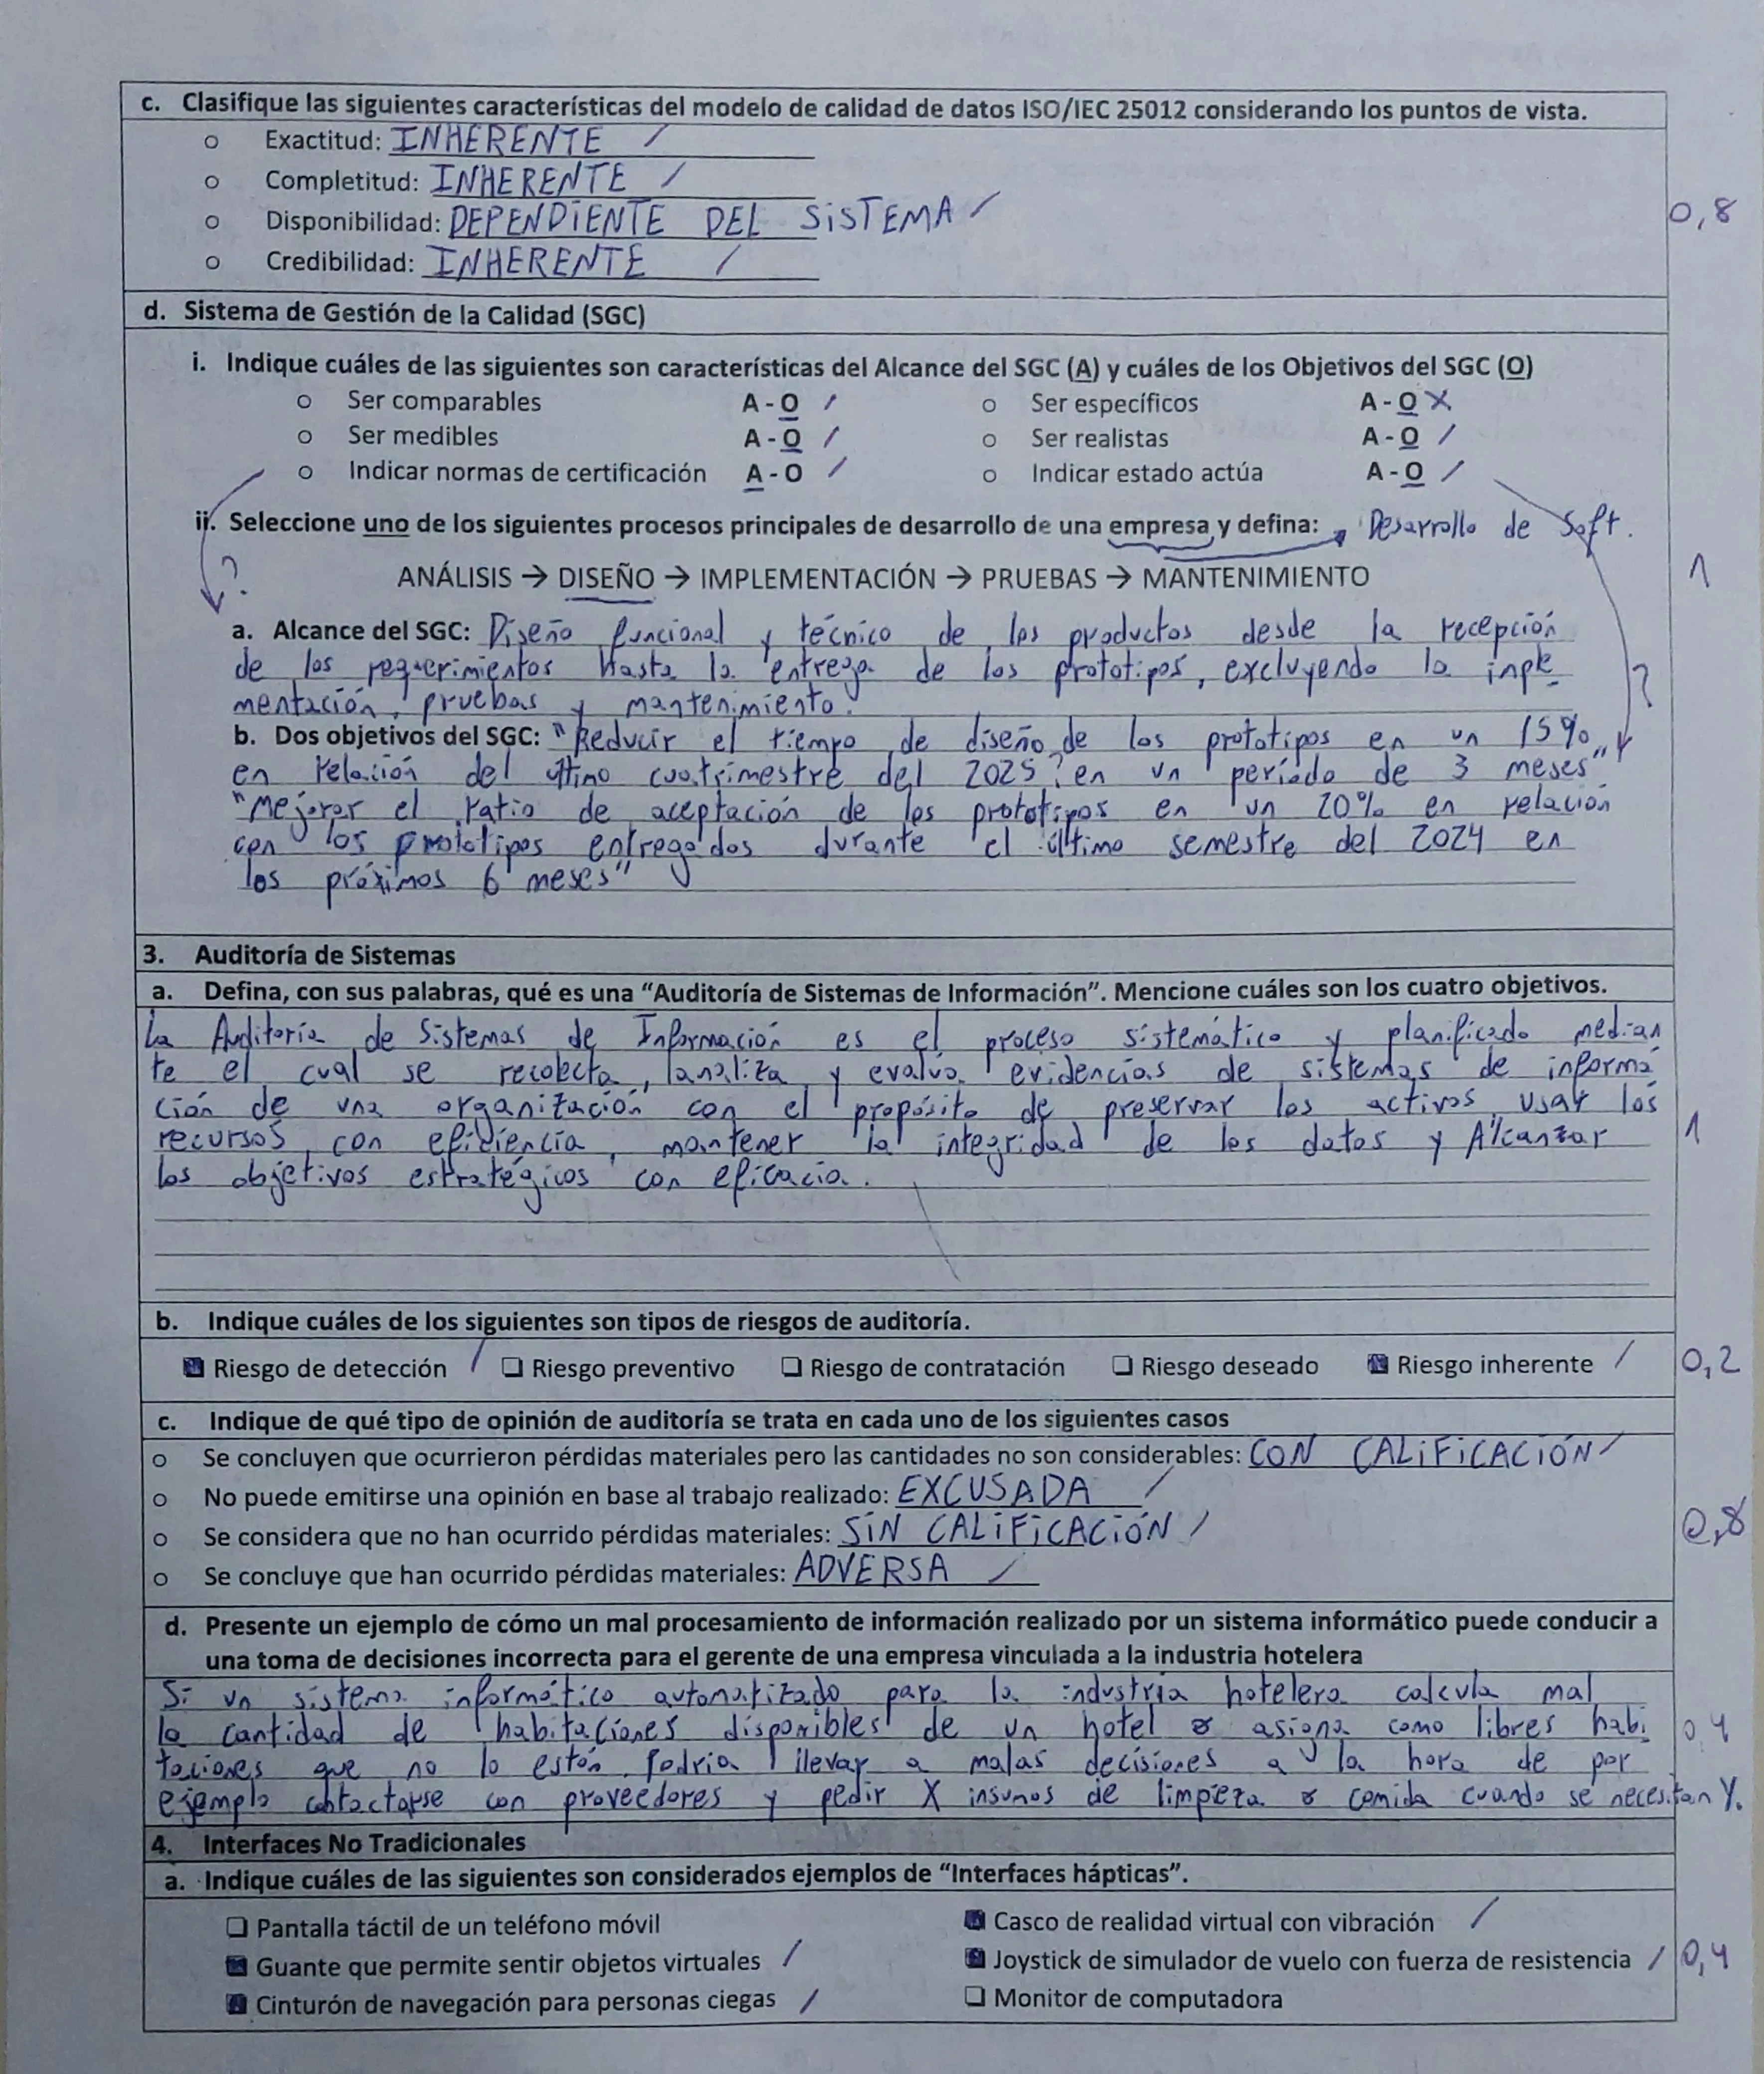 c. Clasifique las siguientes características del modelo de calidad de datos ISO/IEC 25012 considerando los puntos de vista.
○ Exactitud: INHERENTE /
○ Completitud: INHERENTE /
○ Disponibilidad: DEPENDIENTE DEL SISTEMA /
0,8
○ Credibilidad: INHERENTE /
d. Sistema de Gestión de la Calidad (SGC)
i. Indique cuáles de las siguientes son características del Alcance del SGC (A) y cuáles de los Objetivos del SGC (O)
○ Ser comparables A - O / ○ Ser específicos A - O X
○ Ser medibles A - O / ○ Ser realistas A - O /
○ Indicar normas de certificación A - O / ○ Indicar estado actúa A - O /
ii. Seleccione uno de los siguientes procesos principales de desarrollo de una empresa y defina: Desarrollo de Soft.
? ANÁLISIS → DISEÑO → IMPLEMENTACIÓN → PRUEBAS → MANTENIMIENTO 1
a. Alcance del SGC: Diseño funcional y técnico de los productos desde la recepción
de los requerimientos hasta la entrega de los prototipos, excluyendo la inple ?
mentación, pruebas y mantenimiento.
b. Dos objetivos del SGC: "Reducir el tiempo de diseño de los prototipos en un 15%
en relación del último cuatrimestre del 2025" en un período de 3 meses"
"Mejorar el ratio de aceptación de los prototipos en un 20% en relación
con los prototipos entregados durante el último semestre del 2024 en
los próximos 6 meses"
3. Auditoría de Sistemas
a. Defina, con sus palabras, qué es una “Auditoría de Sistemas de Información”. Mencione cuáles son los cuatro objetivos.
La Auditoría de Sistemas de Información es el proceso sistemático y planificado median
te el cual se recolecta, analiza y evalúa evidencias de sistemas de informa
ción de una organización con el propósito de preservar los activos, usar los
recursos con eficiencia, mantener la integridad de los datos y Alcanzar 1
los objetivos estratégicos con eficacia.
b. Indique cuáles de los siguientes son tipos de riesgos de auditoría.
Riesgo de detección / Riesgo preventivo Riesgo de contratación Riesgo deseado Riesgo inherente / 0,2
c. Indique de qué tipo de opinión de auditoría se trata en cada uno de los siguientes casos
○ Se concluyen que ocurrieron pérdidas materiales pero las cantidades no son considerables: CON CALIFICACIÓN /
○ No puede emitirse una opinión en base al trabajo realizado: EXCUSADA /
○ Se considera que no han ocurrido pérdidas materiales: SIN CALIFICACIÓN / 0,8
○ Se concluye que han ocurrido pérdidas materiales: ADVERSA /
d. Presente un ejemplo de cómo un mal procesamiento de información realizado por un sistema informático puede conducir a
una toma de decisiones incorrecta para el gerente de una empresa vinculada a la industria hotelera
Si un sistema informático automatizado para la industria hotelera calcula mal
la cantidad de habitaciones disponibles de un hotel o asigna como libres habi 0,4
taciones que no lo están, podría llevar a malas decisiones a la hora de por
ejemplo contactarse con proveedores y pedir X insumos de limpieza o comida cuando se necesitan Y.
4. Interfaces No Tradicionales
a. Indique cuáles de las siguientes son considerados ejemplos de “Interfaces hápticas”.
Pantalla táctil de un teléfono móvil Casco de realidad virtual con vibración /
Guante que permite sentir objetos virtuales / Joystick de simulador de vuelo con fuerza de resistencia / 0,4
Cinturón de navegación para personas ciegas / Monitor de computadora